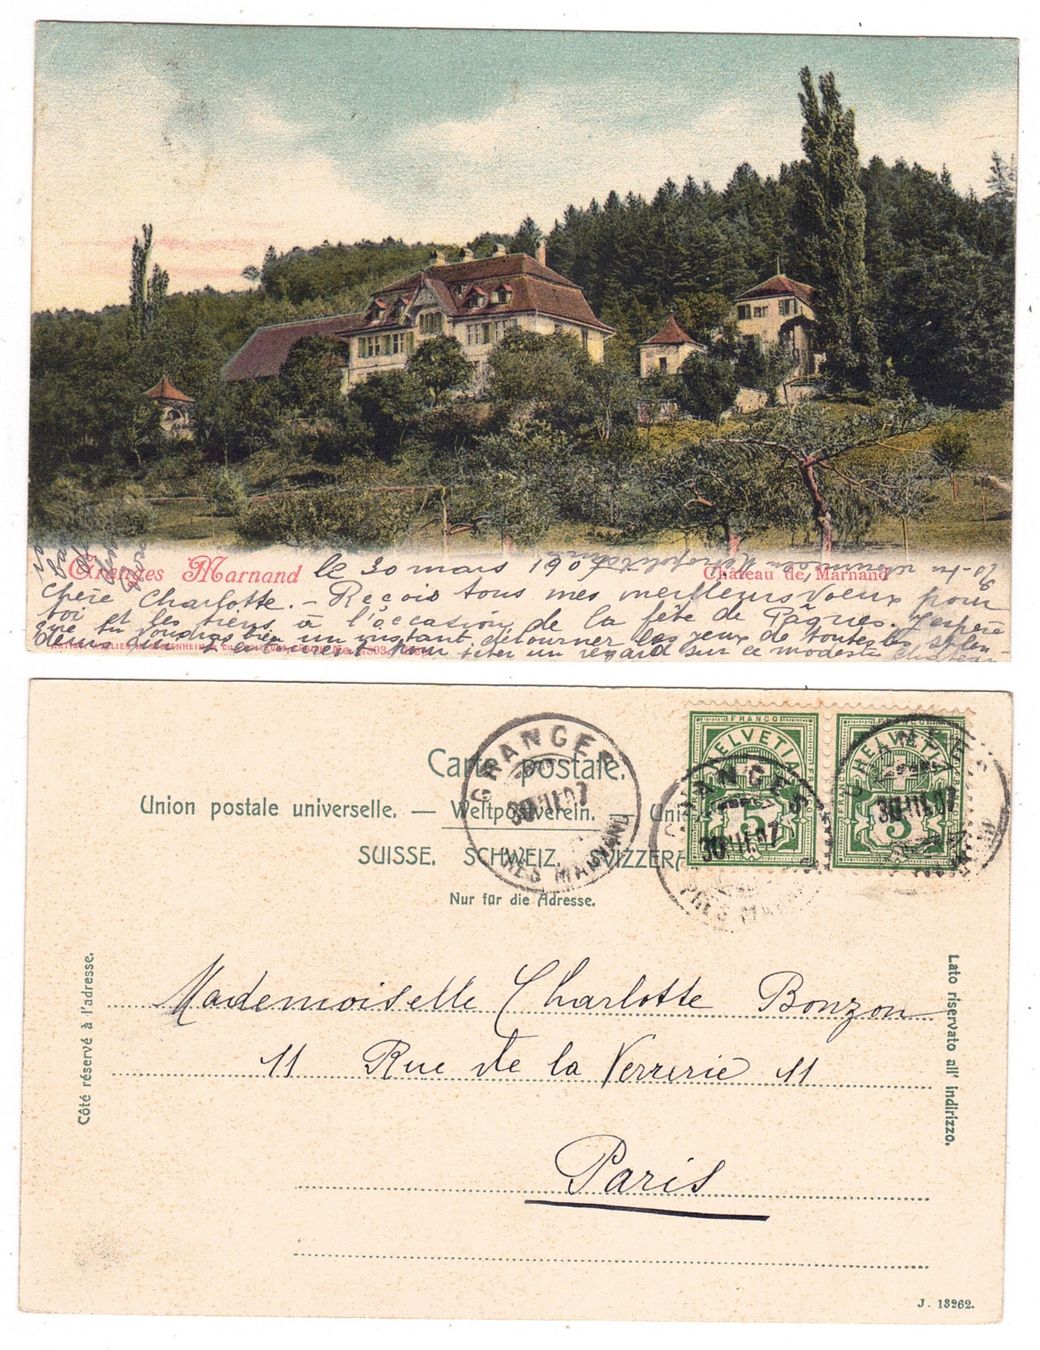 Granges Marnand le 30 mars 1907 Château de Marnand
Chère Charlotte. - Reçois tous mes meilleurs voeux pour
toi et les tiens, à l'occasion de la fête de Pâques. J'espère
que tu voudras bien un instant détourner les yeux de toutes les splen-
jeter un regard sur ce modeste château
Carte postale.
Union postale universelle. — Weltpostverein. —
SUISSE. SCHWEIZ. SVIZZERA
Nur für die Adresse.
GRANGES
30.III.07
PRÈS MARNAND
FRANCO
HELVETIA
5
GRANGES
30.III.07
PRÈS MARNAND
FRANCO
HELVETIA
5
30.III.07
Côté réservé à l'adresse.
Lato riservato all' indirizzo.
Mademoiselle Charlotte Bonzon
11 Rue de la Verrerie 11
Paris
J. 13262.